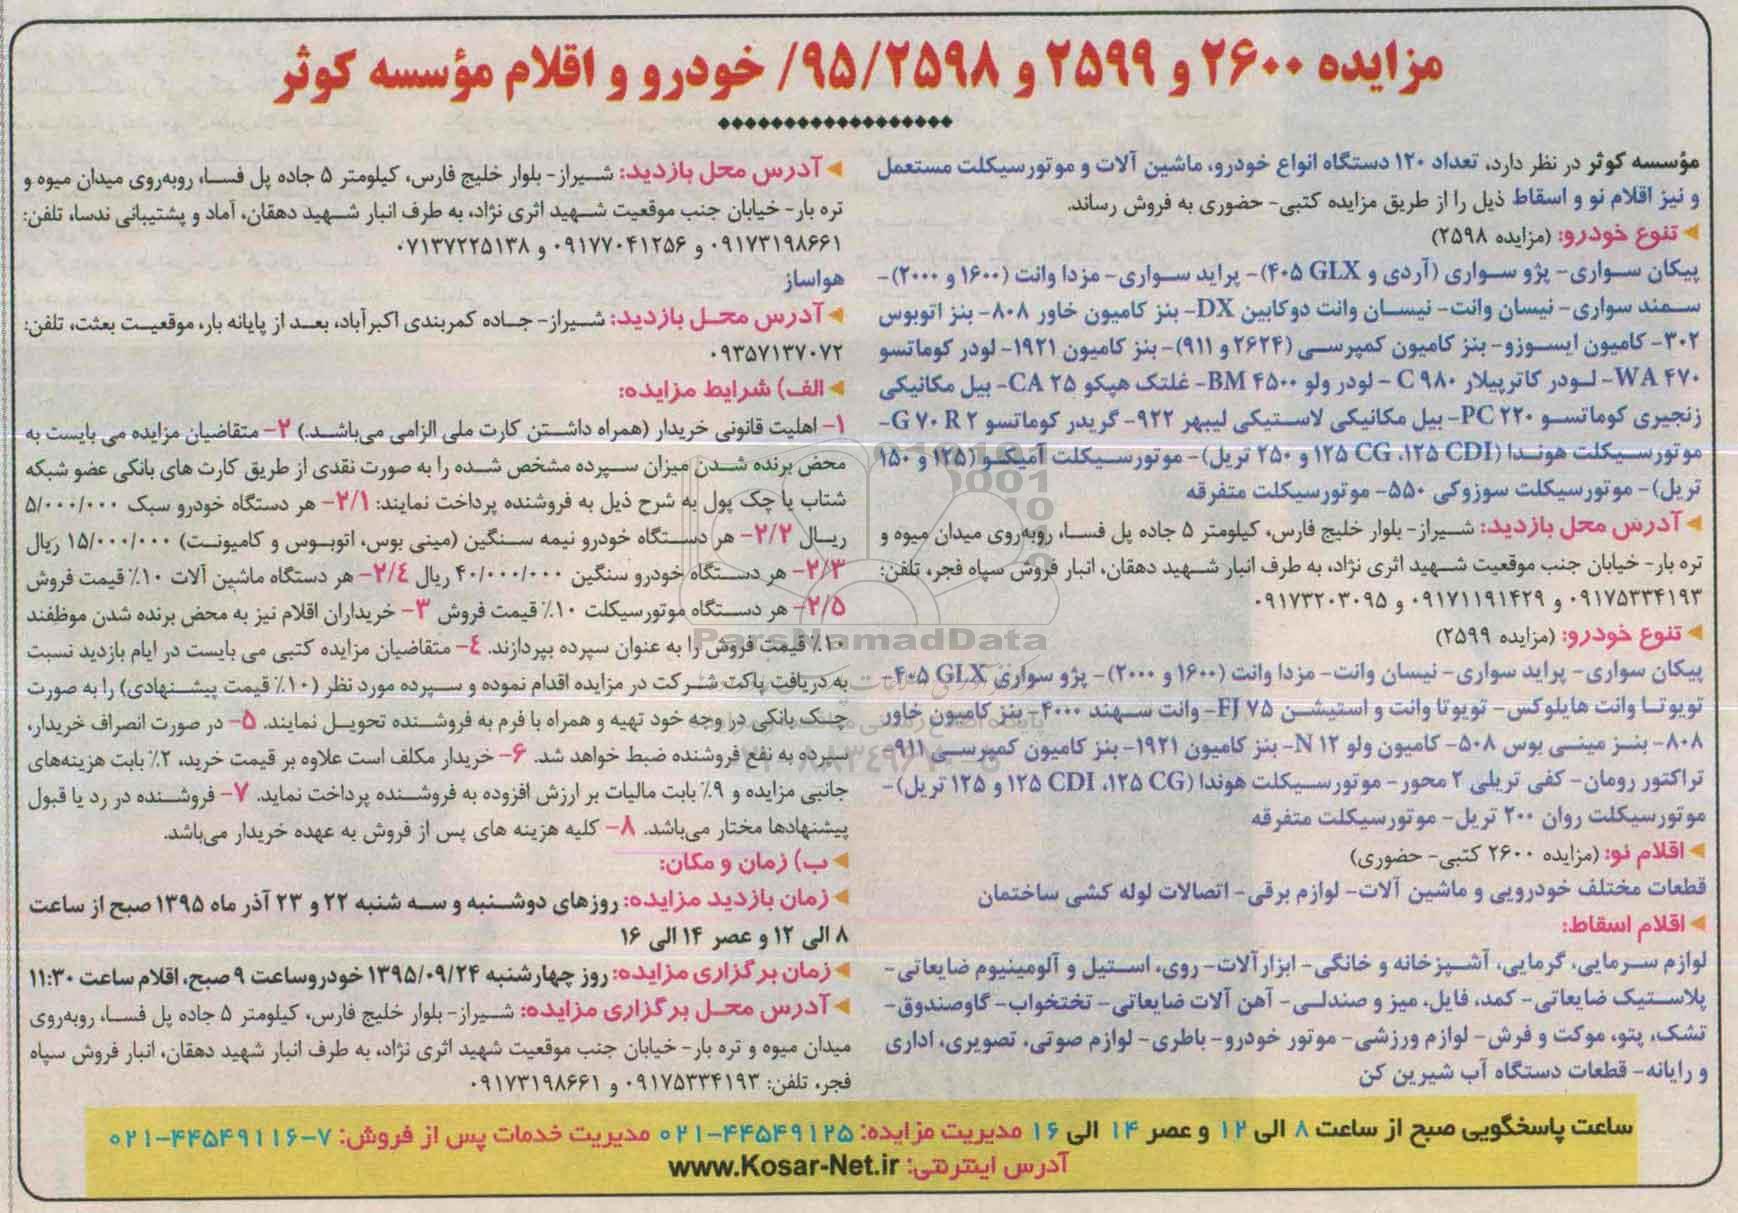 مزایده ۲۶۰۰ و ۲۵۹۹ و ۹۵/۲۵۹۸/ خودرو و اقلام مؤسسه کوثر
مؤسسه کوثر در نظر دارد، تعداد ۱۲۰ دستگاه انواع خودرو، ماشین آلات و موتورسیکلت مستعمل
و نیز اقلام نو و اسقاط ذیل را از طریق مزایده کتبی- حضوری به فروش رساند.
تنوع خودرو: (مزایده ۲۵۹۸)
پیکان سواری- پژو سواری (آردی و GLX ۴۰۵)- پراید سواری- مزدا وانت (۱۶۰۰ و ۲۰۰۰)-
سمند سواری- نیسان وانت- نیسان وانت دوکابین DX- بنز کامیون خاور ۸۰۸- بنز اتوبوس
۳۰۲- کامیون ایسوزو- بنز کامیون کمپرسی (۲۶۲۴ و ۹۱۱)- بنز کامیون ۱۹۲۱- لودر کوماتسو
WA ۴۷۰- لودر کاترپیلار C ۹۸۰ - لودر ولو BM ۴۵۰۰- غلتک هپکو CA ۲۵- بیل مکانیکی
زنجیری کوماتسو PC ۲۲۰- بیل مکانیکی لاستیکی لیبهر ۹۲۲- گریدر کوماتسو G ۷۰ R ۲-
موتورسیکلت هوندا (۱۲۵ CG ،۱۲۵ CDI و ۲۵۰ تریل)- موتورسیکلت آمیکو (۱۲۵ و ۱۵۰
تریل)- موتورسیکلت سوزوکی ۵۵۰- موتورسیکلت متفرقه
آدرس محل بازدید: شیراز- بلوار خلیج فارس، کیلومتر ۵ جاده پل فسا، روبه‌روی میدان میوه و
تره بار- خیابان جنب موقعیت شهید اثری نژاد، به طرف انبار شهید دهقان، انبار فروش سپاه فجر، تلفن:
۰۹۱۷۵۳۳۴۱۹۳ و ۰۹۱۷۱۱۹۱۴۲۹ و ۰۹۱۷۳۲۰۳۰۹۵
تنوع خودرو: (مزایده ۲۵۹۹)
پیکان سواری- پراید سواری- نیسان وانت- مزدا وانت (۱۶۰۰ و ۲۰۰۰)- پژو سواری GLX ۴۰۵-
تویوتا وانت هایلوکس- تویوتا وانت و استیشن FJ ۷۵- وانت سهند ۴۰۰۰- بنز کامیون خاور
۸۰۸- بنز مینی بوس ۵۰۸- کامیون ولو N ۱۲- بنز کامیون ۱۹۲۱- بنز کامیون کمپرسی ۹۱۱-
تراکتور رومان- کفی تریلی ۲ محور- موتورسیکلت هوندا (۱۲۵ CDI ،۱۲۵ CG و ۱۲۵ تریل)-
موتورسیکلت روان ۲۰۰ تریل- موتورسیکلت متفرقه
اقلام نو: (مزایده ۲۶۰۰ کتبی- حضوری)
قطعات مختلف خودرویی و ماشین آلات- لوازم برقی- اتصالات لوله کشی ساختمان
اقلام اسقاط:
لوازم سرمایی، گرمایی، آشپزخانه و خانگی- ابزارآلات- روی، استیل و آلومینیوم ضایعاتی-
پلاستیک ضایعاتی- کمد، فایل، میز و صندلی- آهن آلات ضایعاتی- تختخواب- گاوصندوق-
تشک، پتو، موکت و فرش- لوازم ورزشی- موتور خودرو- باطری- لوازم صوتی، تصویری، اداری
و رایانه- قطعات دستگاه آب شیرین کن
آدرس محل بازدید: شیراز- بلوار خلیج فارس، کیلومتر ۵ جاده پل فسا، روبه‌روی میدان میوه و
تره بار- خیابان جنب موقعیت شهید اثری نژاد، به طرف انبار شهید دهقان، آماد و پشتیبانی ندسا، تلفن:
۰۹۱۷۳۱۹۸۶۶۱ و ۰۹۱۷۷۰۴۱۲۵۶ و ۰۷۱۳۷۲۲۵۱۳۸
هواساز
آدرس محل بازدید: شیراز- جاده کمربندی اکبرآباد، بعد از پایانه بار، موقعیت بعثت، تلفن:
۰۹۳۵۷۱۳۷۰۷۲
الف) شرایط مزایده:
۱- اهلیت قانونی خریدار (همراه داشتن کارت ملی الزامی می‌باشد.) ۲- متقاضیان مزایده می بایست به
محض برنده شدن میزان سپرده مشخص شده را به صورت نقدی از طریق کارت های بانکی عضو شبکه
شتاب یا چک پول به شرح ذیل به فروشنده پرداخت نمایند: ۲/۱- هر دستگاه خودرو سبک ۵/۰۰۰/۰۰۰
ریال ۲/۲- هر دستگاه خودرو نیمه سنگین (مینی بوس، اتوبوس و کامیونت) ۱۵/۰۰۰/۰۰۰ ریال
۲/۳- هر دستگاه خودرو سنگین ۴۰/۰۰۰/۰۰۰ ریال ۲/۴- هر دستگاه ماشین آلات ۱۰٪ قیمت فروش
۲/۵- هر دستگاه موتورسیکلت ۱۰٪ قیمت فروش ۳- خریداران اقلام نیز به محض برنده شدن موظفند
۱۰٪ قیمت فروش را به عنوان سپرده بپردازند. ۴- متقاضیان مزایده کتبی می بایست در ایام بازدید نسبت
به دریافت پاکت شرکت در مزایده اقدام نموده و سپرده مورد نظر (۱۰٪ قیمت پیشنهادی) را به صورت
چک بانکی در وجه خود تهیه و همراه با فرم به فروشنده تحویل نمایند. ۵- در صورت انصراف خریدار،
سپرده به نفع فروشنده ضبط خواهد شد. ۶- خریدار مکلف است علاوه بر قیمت خرید، ۲٪ بابت هزینه‌های
جانبی مزایده و ۹٪ بابت مالیات بر ارزش افزوده به فروشنده پرداخت نماید. ۷- فروشنده در رد یا قبول
پیشنهادها مختار می‌باشد. ۸- کلیه هزینه های پس از فروش به عهده خریدار می‌باشد.
ب) زمان و مکان:
زمان بازدید مزایده: روزهای دوشنبه و سه شنبه ۲۲ و ۲۳ آذر ماه ۱۳۹۵ صبح از ساعت
۸ الی ۱۲ و عصر ۱۴ الی ۱۶
زمان برگزاری مزایده: روز چهارشنبه ۱۳۹۵/۰۹/۲۴ خودرو ساعت ۹ صبح، اقلام ساعت ۱۱:۳۰
آدرس محل برگزاری مزایده: شیراز- بلوار خلیج فارس، کیلومتر ۵ جاده پل فسا، روبه‌روی
میدان میوه و تره بار- خیابان جنب موقعیت شهید اثری نژاد، به طرف انبار شهید دهقان، انبار فروش سپاه
فجر، تلفن: ۰۹۱۷۵۳۳۴۱۹۳ و ۰۹۱۷۳۱۹۸۶۶۱
ساعت پاسخگویی صبح از ساعت ۸ الی ۱۲ و عصر ۱۴ الی ۱۶ مدیریت مزایده: ۰۲۱-۴۴۵۴۹۱۲۵ مدیریت خدمات پس از فروش: ۷-۰۲۱-۴۴۵۴۹۱۱۶
آدرس اینترنتی: www.Kosar-Net.ir
ParsNamadData